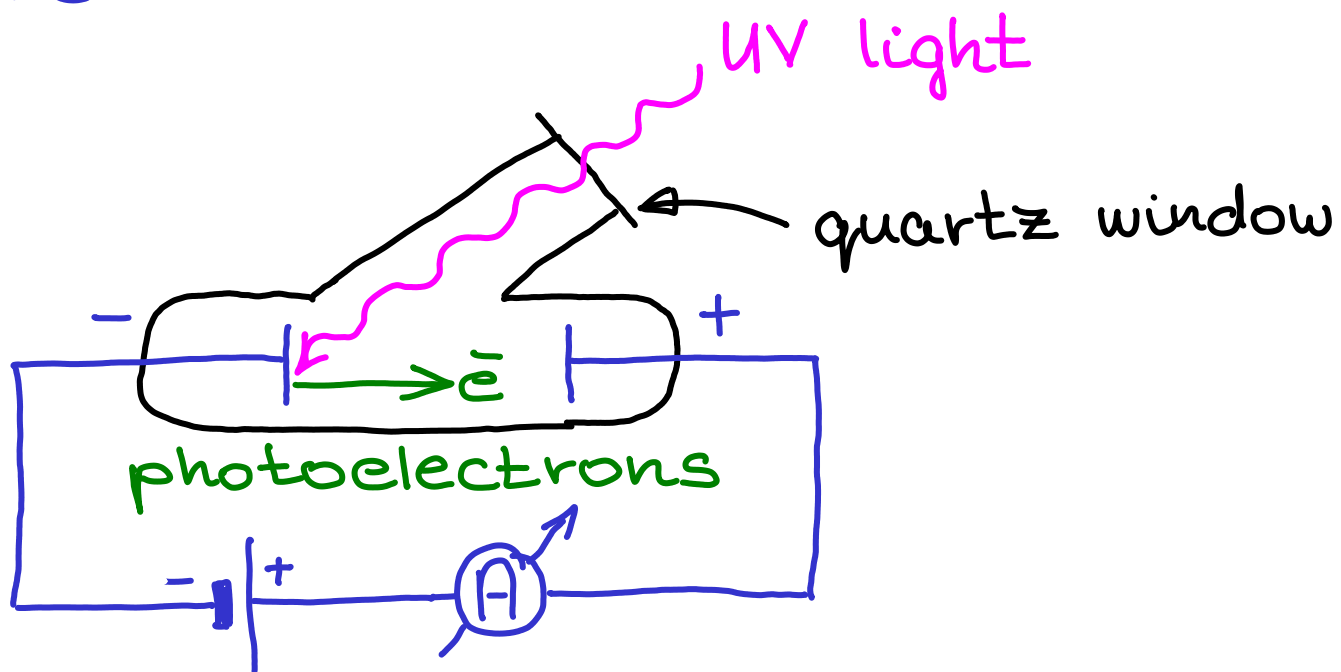 UV light
quartz window
- +
ē
photoelectrons
- +
A